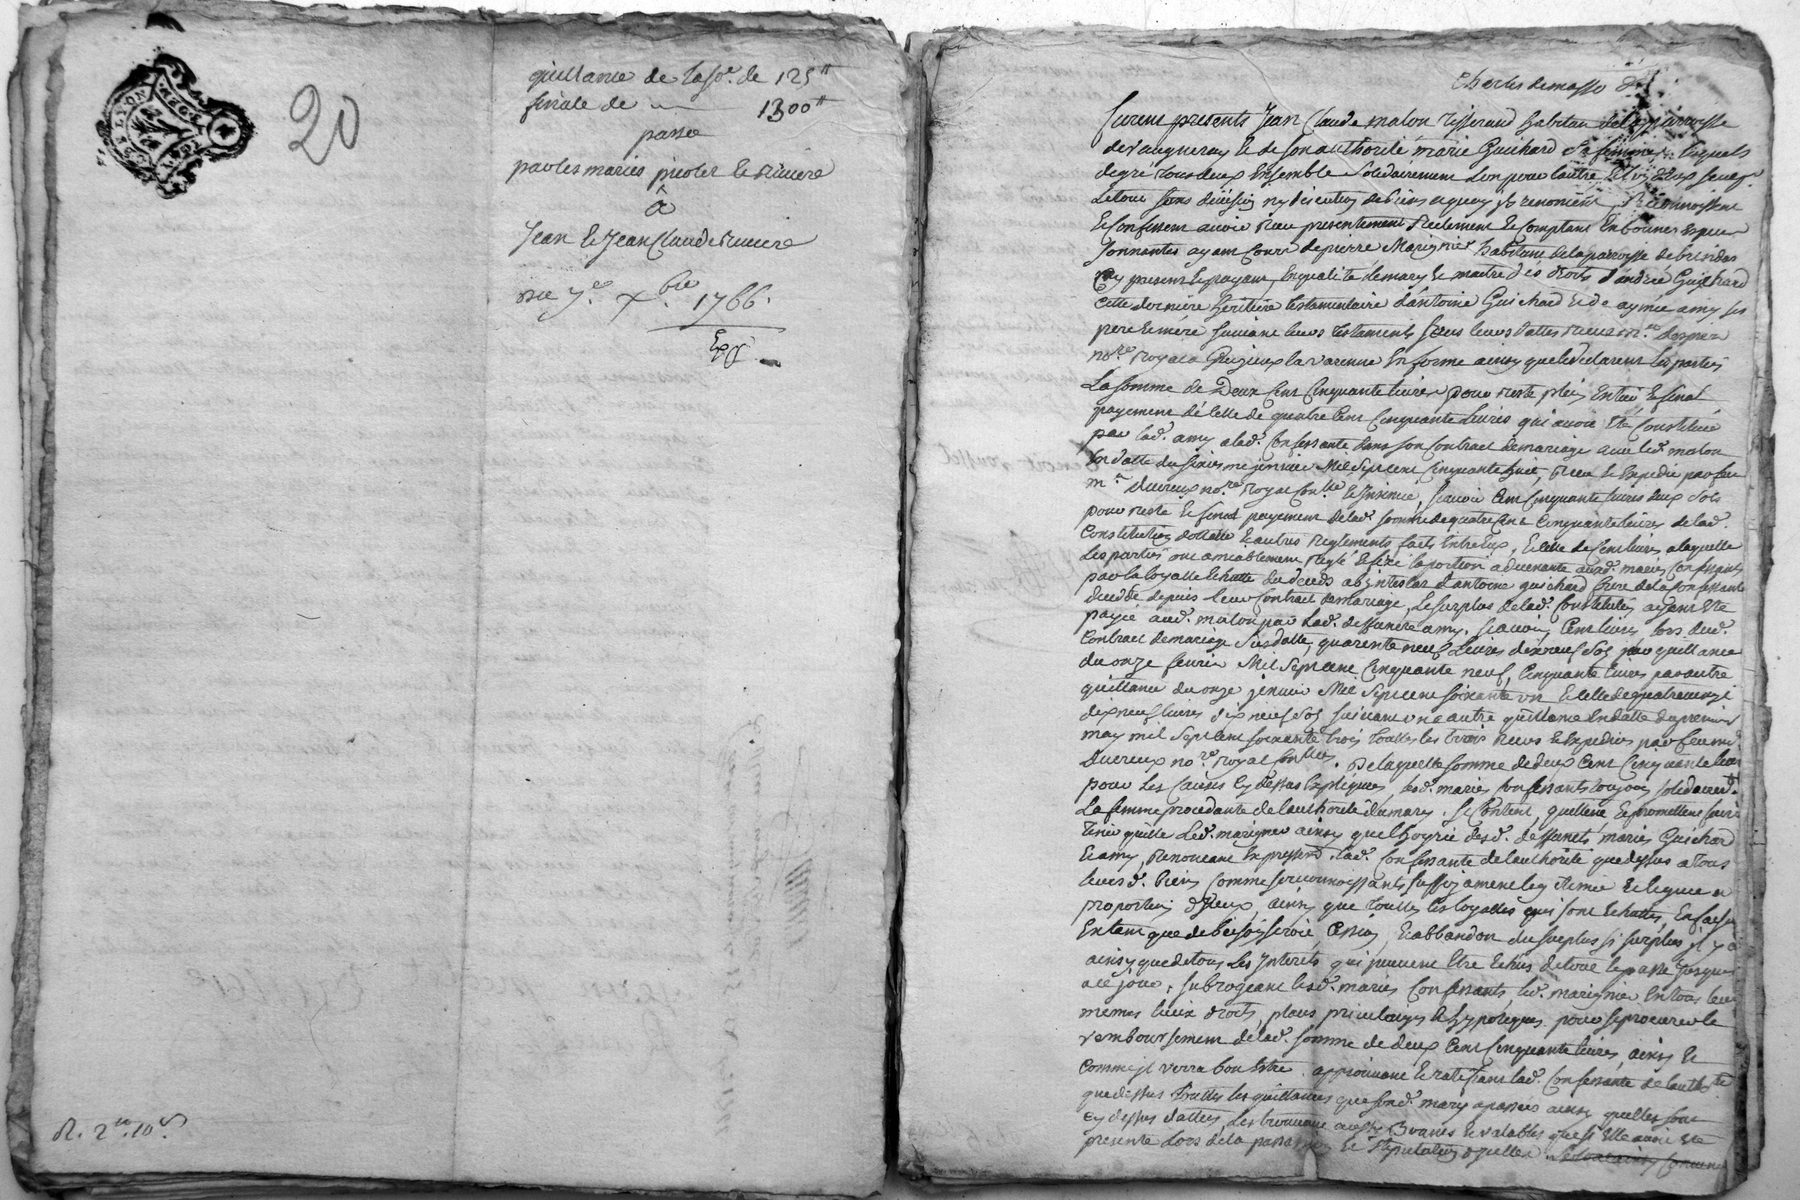 GEN. DE LYON
20
quittance de la se. de 125#
finale de 1300#
passée
par les mariés picolet et riviere
à
Jean et Jean Claude riviere
du 7e. xbre 1766.
Exp
R. 2# 10s
Charles demasso
Furent présents Jean Claude maton tisserand habitan de la parroisse
de vaugneray et de son authorité marie Guichard sa femme, lesquels
de gré tous deux Ensemble solidairement l'un pour l'autre
le tout sans division ny discution de biens a quoy ils renoncent, Reconnoissent
Et Confessent avoir reçu presentement Réelement et Comptant En bonnes Espèces
sonnantes ayant Cours de pierre Marignier habitant de la parroisse de brindas
Cy present et payant, En qualité de mary et maitre des droits d'andrée Guichard
cette dernière héritière testamentaire d'antoine Guichard et de aymée amy ses
pere et mère suivant leurs testaments sous leurs dattes reçus Me.
nore. Royal a Grezieux la varenne En forme ainsy que le déclarent les parties
La somme de Deux Cent Cinquante livres pour reste, plein Entier et final
payement de celle de quatre Cent Cinquante livres qui avoit Eté Constituée
par lad. amy a lad. Confessante dans son Contract de mariage avec led. maton
En datte du sixieme jenvier Mil sept cent Cinquante huit, Reçu et Expedié par feu
me. Ducreux nore. Royal et Insinué, sçavoir Cent Cinquante livres deux sols
pour reste et final payement de lad. somme de quatre Cent Cinquante livres de lad.
Constitution dottalle Et autres reglements faits Entre Eux, Et celle de Cent livres, a laquelle
les parties ont amiablement reglé Et fixé la portion advenante auxd. mariés Confessants
par la loyalle Echutte du décéds abintestat d'antoine guichard frere de la Confessante
décédé depuis leur Contract de mariage, le surplus de lad. Constitution ayant Eté
payée aud. maton par lad. deffuncte amy. sçavoir Cent livres lors dud.
Contract de mariage susdatté, quarente neuf livres dixneuf sols par quittance
du onze fevrier Mil Sept cent Cinquante neuf, Cinquante livres par autre
quittance du onze jenvier Mil Sept cent soixante un Et celle de quatrevingt
dixneuf livres dix neuf sols suivant une autre quittance En datte du premier
may mil sept cent soixante trois touttes les trois reçues et Expediées par feu me.
Ducreux nore. royal. De laquelle somme de deux Cent Cinquante livres
pour les Causes Cy dessus Expliquées, lesd. mariés Confessants toujours solidairemt.
La femme procedante de l'authorité du mary. se Content, quittent Et promettent faire
tenir quitte led. marignier ainsy que l'hoyrie desd. deffuncts mariés Guichard
Et amy, Renonceant Expressemt. lad. Confessante de l'authorité que dessus a tous
leurs d. biens Comme se reconnoissant suffisamment legitimée
proportion d'Iceux, ainsy que touttes les loyalles qui sont Echuttes, En faisant
En tant que de besoin seroit, Cession, Et abbandon du surplus si surplus il y a
ainsy que de tous les Interets qui peuvent Etre Echus de tout le passé jusques
a ce jour, subrogeant lesd. mariés Confessants, led. marignier En tous leurs
memes lieux droits, places privileges et hypoteques pour se procurer le
remboursement de lad. somme de deux Cent Cinquante livres, ainsy et
Comme il verra bon Etre, approuvant Et ratifiant lad. Confessante de l'authté.
que dessus touttes les quittances que sond. mary a passées ainsy quelles sont
Cy dessus dattées, les trouvant Bonnes et valables que si Elle avoit Eté
presente lors de la passation et stipulation d'ycelles.